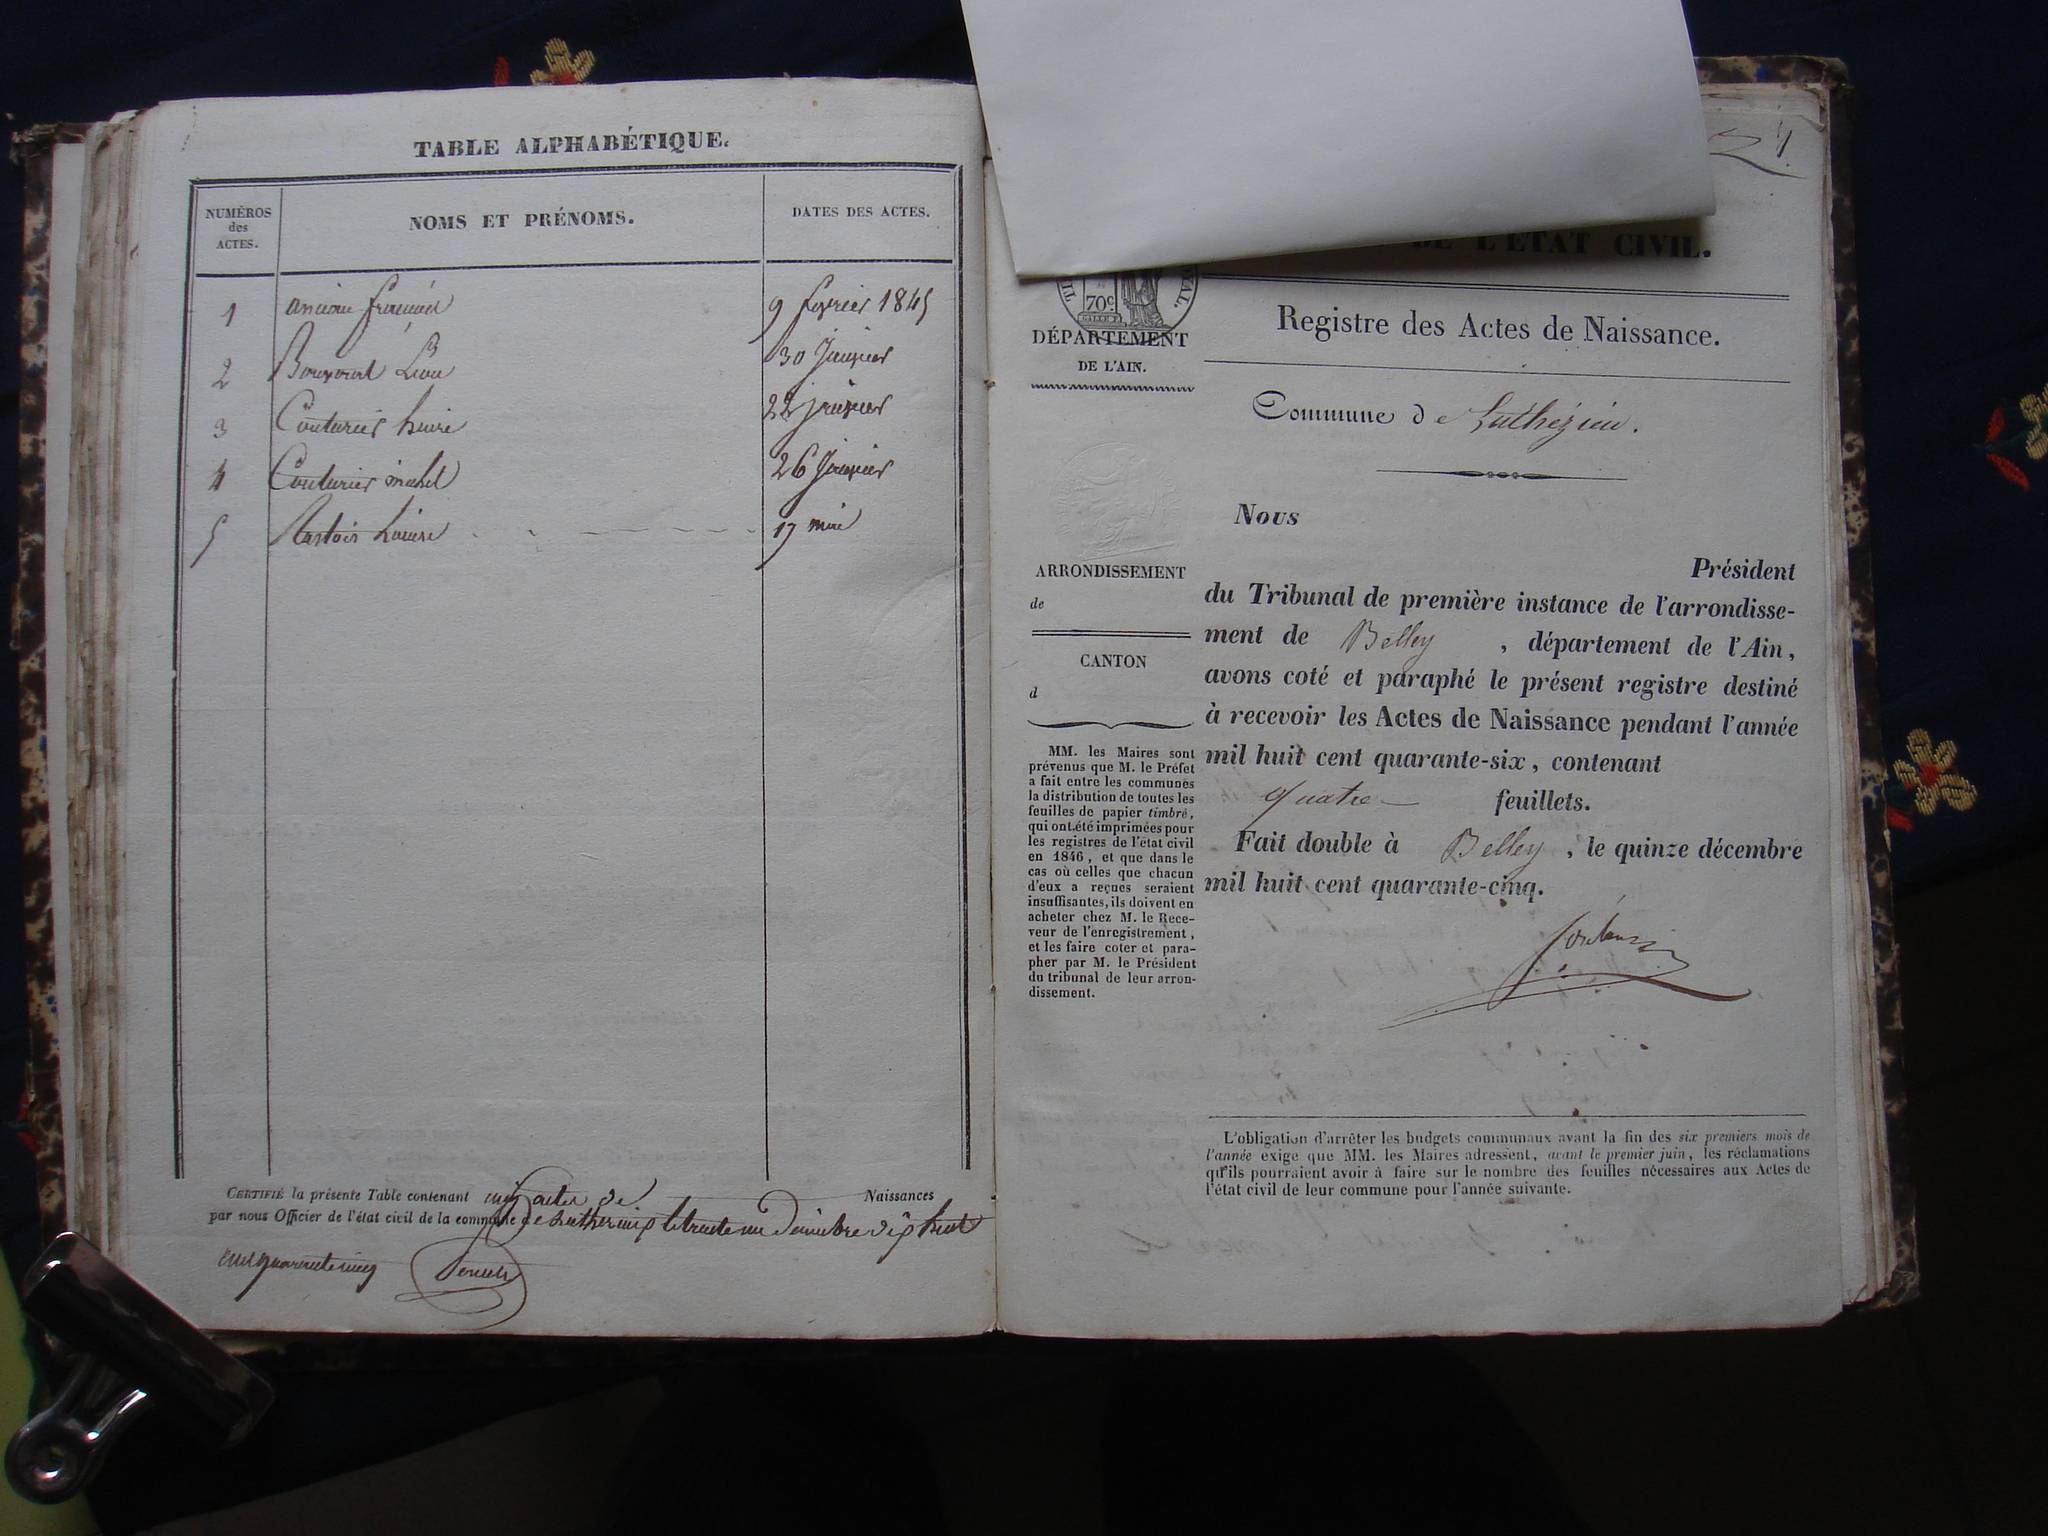 TABLE ALPHABÉTIQUE.
NUMÉROS
des
ACTES.
NOMS ET PRÉNOMS.
DATES DES ACTES.
1 9 février 1845
2 30 Janvier
3 Couturier 22 janvier
4 Couturier michel 26 Janvier
5 Louise 17 mai
CERTIFIÉ la présente Table contenant cinq actes de Naissances
par nous Officier de l'état civil de la commune de le trente un Décembre dix huit
cent quarante cinq
DE L'ÉTAT CIVIL.
70c
DÉPARTEMENT
DE L'AIN.
Registre des Actes de Naissance.
Commune de Luthézieu.
Nous
Président
du Tribunal de première instance de l'arrondisse-
ment de Belley, département de l'Ain,
avons coté et paraphé le présent registre destiné
à recevoir les Actes de Naissance pendant l'année
mil huit cent quarante-six, contenant
quatre feuillets.
Fait double à Belley, le quinze décembre
mil huit cent quarante-cinq.
ARRONDISSEMENT
de
CANTON
d
MM. les Maires sont
prévenus que M. le Préfet
a fait entre les communes
la distribution de toutes les
feuilles de papier timbré,
qui ont été imprimées pour
les registres de l'état civil
en 1846, et que dans le
cas où celles que chacun
d'eux a reçues seraient
insuffisantes, ils doivent en
acheter chez M. le Rece-
veur de l'enregistrement,
et les faire coter et para-
pher par M. le Président
du tribunal de leur arron-
dissement.
L'obligation d'arrêter les budgets communaux avant la fin des six premiers mois de
l'année exige que MM. les Maires adressent, avant le premier juin, les réclamations
qu'ils pourraient avoir à faire sur le nombre des feuilles nécessaires aux Actes de
l'état civil de leur commune pour l'année suivante.